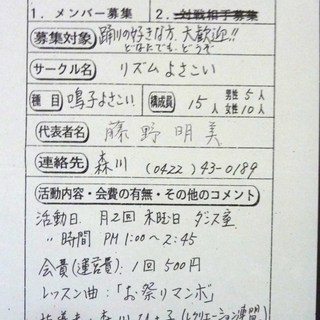 1. メンバー募集 2. 対戦相手募集
募集対象 踊りの好きな方、大歓迎!!
どなたでも、どうぞ
サークル名 リズムよさこい
種目 鳴子よさこい 構成員 15人 男性5人 女性10人
代表者名 藤野明美
連絡先 森川 (0422) 43-0189
活動内容・会費の有無・その他のコメント
活動日 月2回 水曜日 ダンス室
〃 時間 PM 1:00~2:45
会費(運営費) 1回 500円
レッスン曲:「お祭りマンボ」
指導者:森川 (レクリエーション連盟)